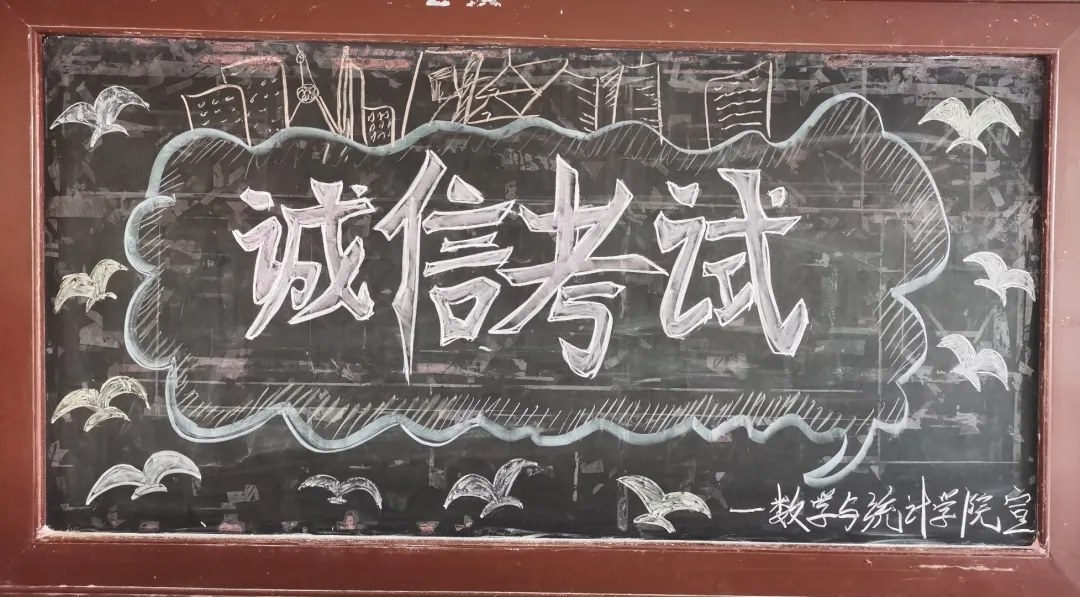 诚信考试
—数学与统计学院宣